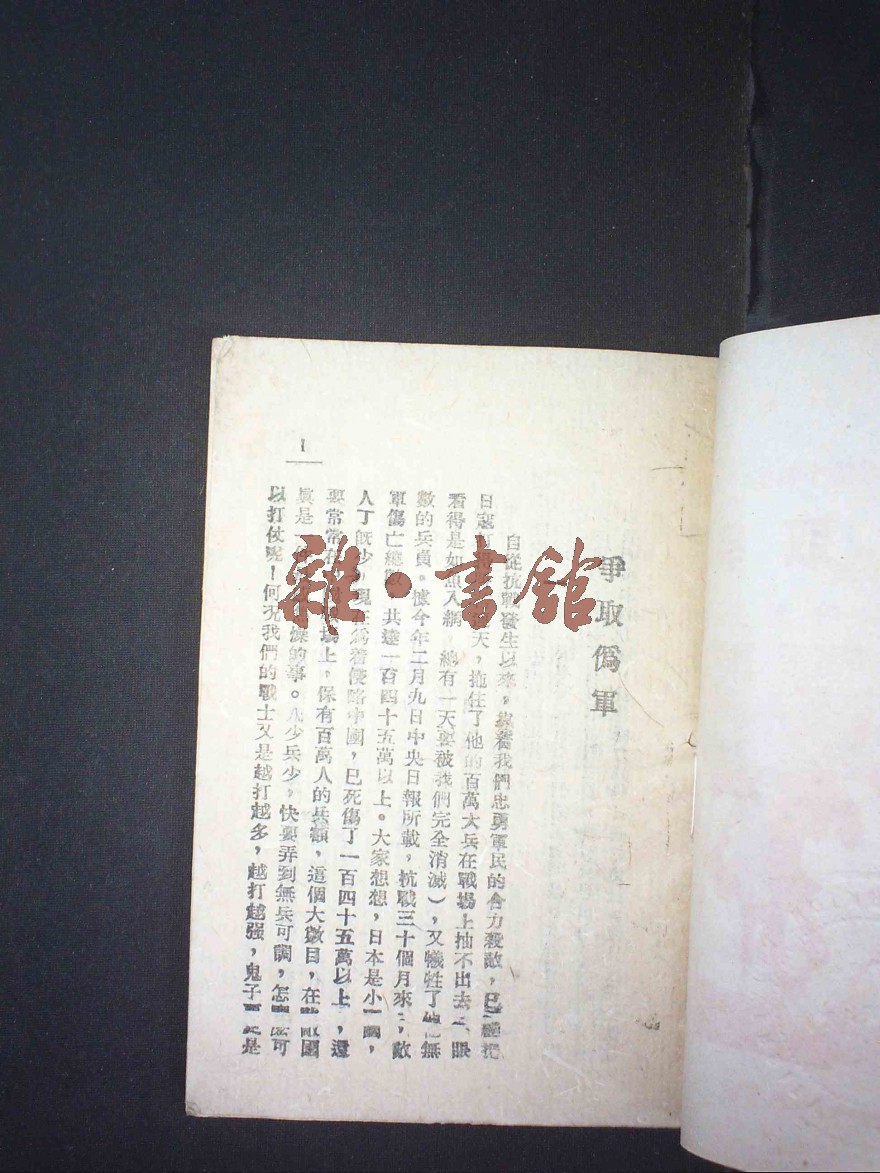 爭取僞軍
自從抗戰發生以來，靠着我們忠勇軍民的合力殺敵，已經把
日寇天，拖住了他的百萬大兵在戰場上抽不出去，眼
看得是如魚入網，總有一天要被我們完全消滅），又犧牲了他無
數的兵員。據今年二月九日中央日報所載，抗戰三十個月來，敵
軍傷亡總數，共達一百四十五萬以上。大家想想，日本是小國，
人丁旣少，現在爲着侵略中國，已死傷了一百四十五萬以上，還
要常常在場上，保有百萬人的兵額，這個大數目，在敵國
眞是一的事。人少兵少，快要弄到無兵可調，怎麼可
以打仗呢！何況我們的戰士又是越打越多，越打越强，鬼子更是
1
雜·書館